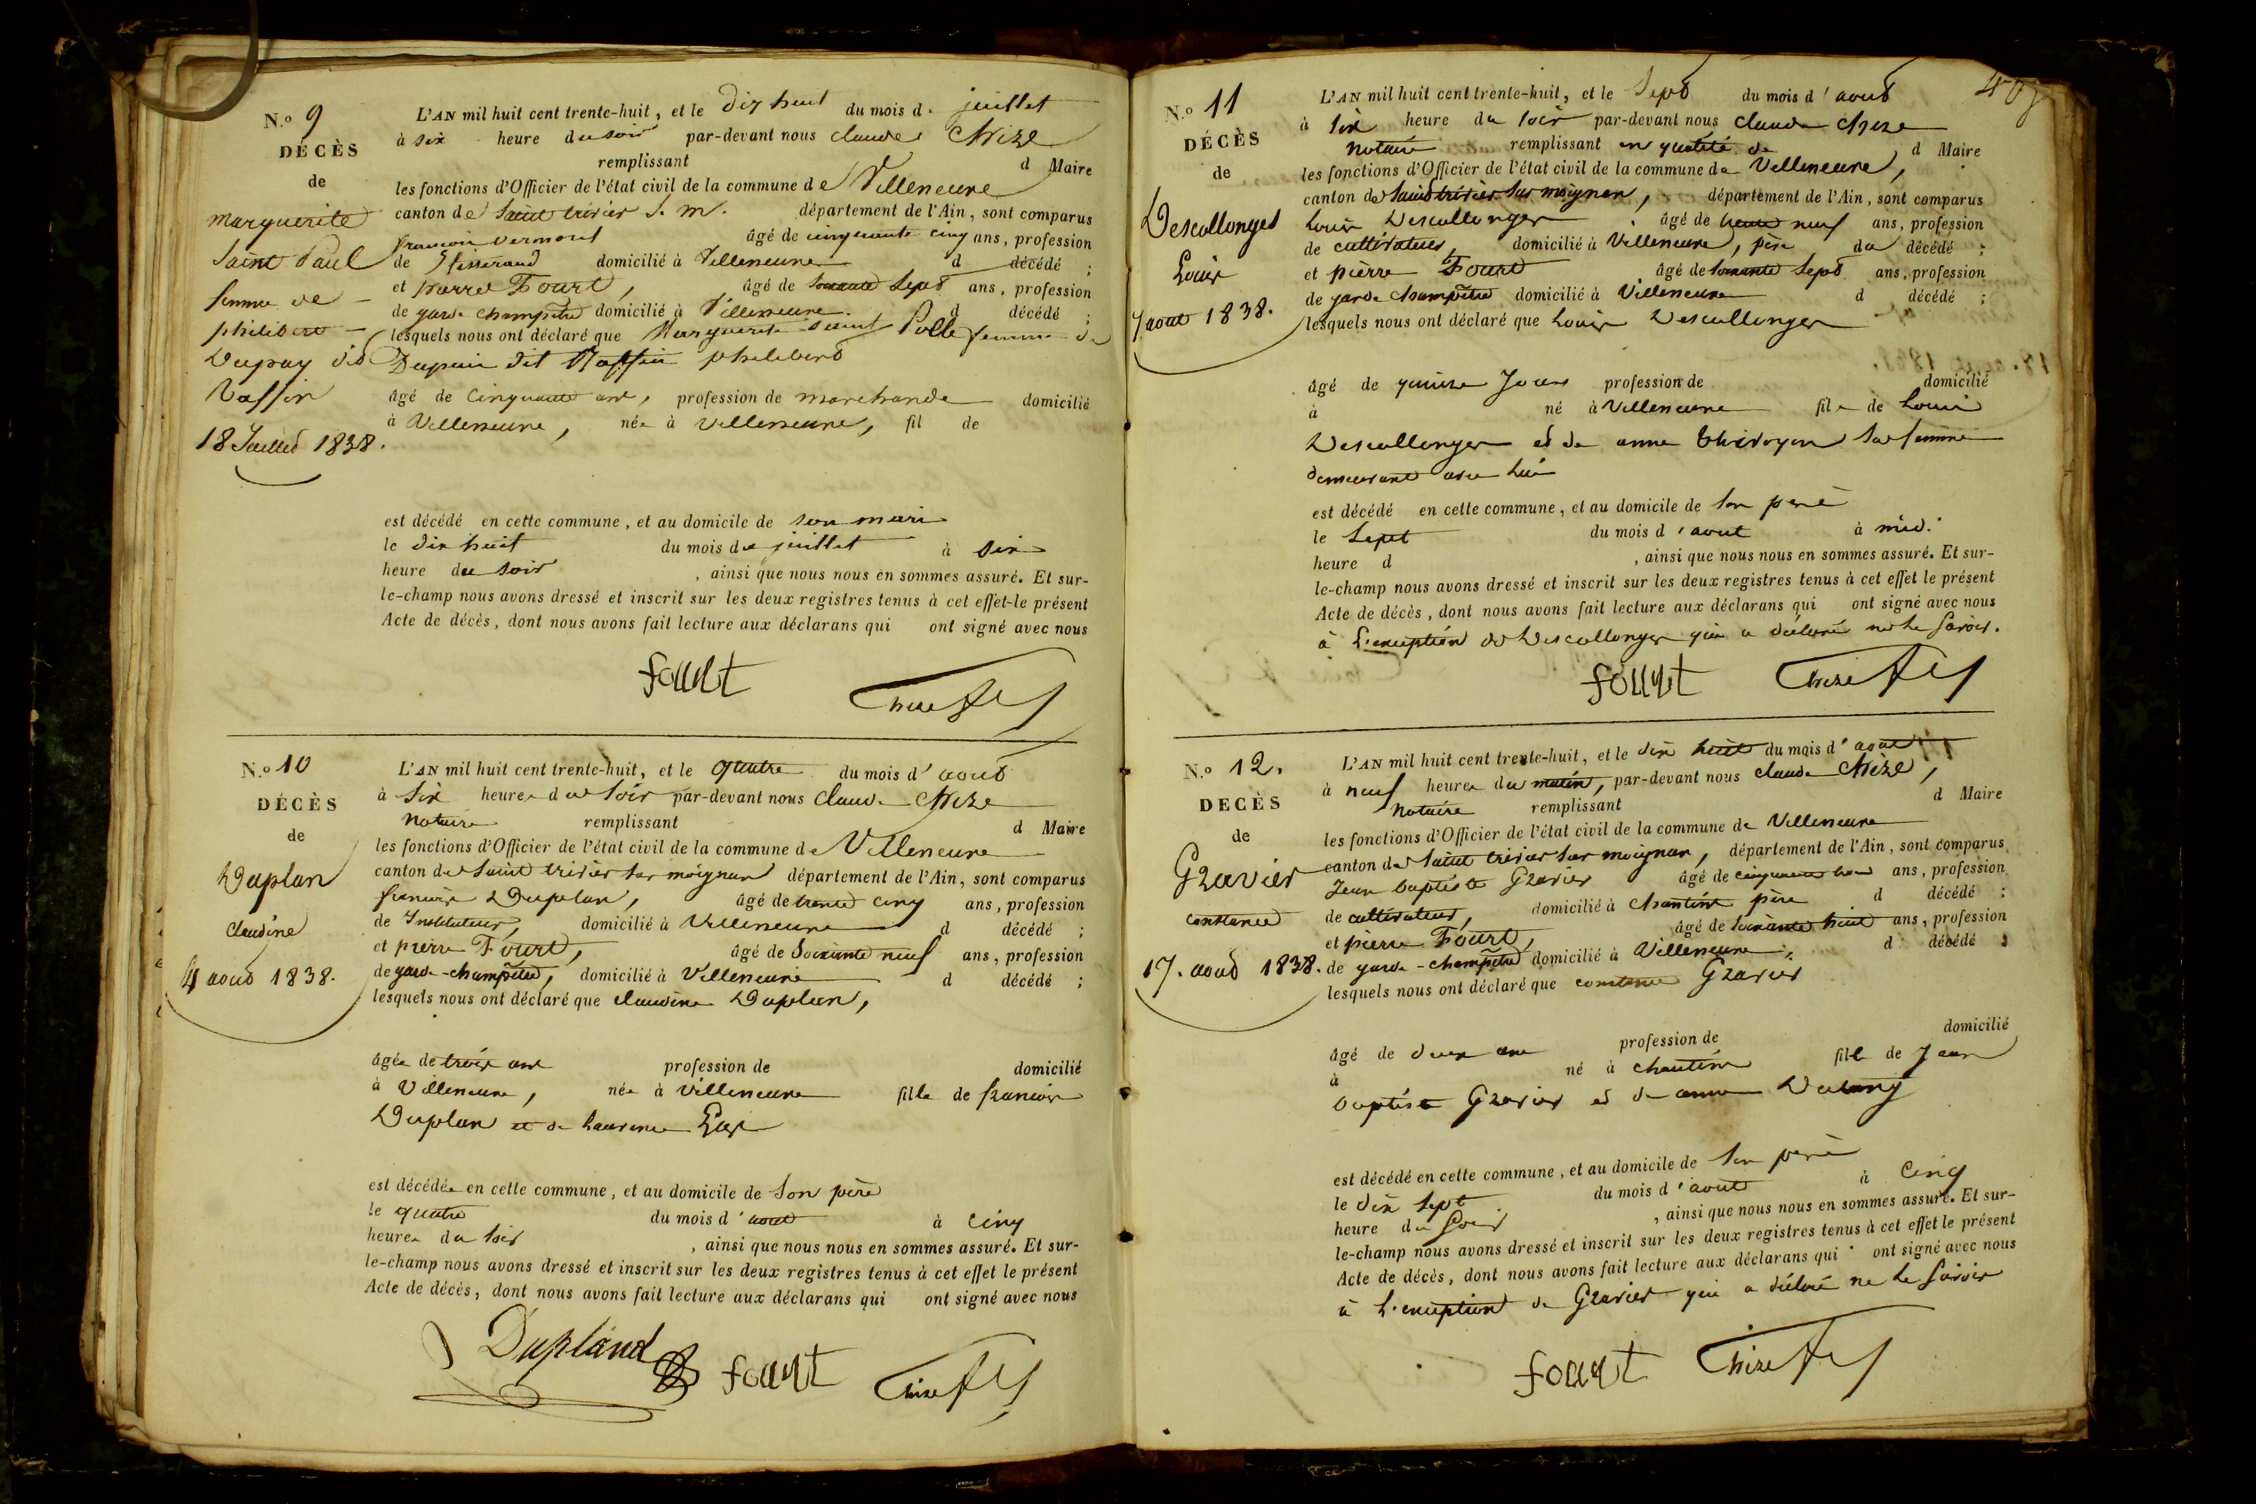 N.º 9
DÉCÈS
de
marguerite
Saint Paul
femme de
philibert
Dupuy dit
Raffin
18 Juillet 1838.
L'AN mil huit cent trente-huit, et le dix huit du mois d. juillet
à six heure du soir par-devant nous claude Chize
remplissant d Maire
les fonctions d'Officier de l'état civil de la commune de Villeneuve
canton de Saint trivier S. m. département de l'Ain, sont comparus
françois Vermont âgé de cinquante cinq ans, profession
de tisserand domicilié à Villeneuve d décédé ;
et pierre Fourt, âgé de soixante sept ans, profession
de garde champêtre domicilié à Villeneuve. d décédé ;
lesquels nous ont déclaré que Marguerite saint Polle femme de
Dupuis dit Raffin philibert
âgé de Cinquante ans, profession de marchande domicilié
à Villeneuve, née à Villeneuve, fil de
est décédé en cette commune, et au domicile de son mari
le dix huit du mois de juillet à six
heure du soir , ainsi que nous nous en sommes assuré. Et sur-
le-champ nous avons dressé et inscrit sur les deux registres tenus à cet effet-le présent
Acte de décès, dont nous avons fait lecture aux déclarans qui ont signé avec nous
fourt Chize
N.º 10
DÉCÈS
de
Duplan
claudine
4 aout 1838.
L'AN mil huit cent trente-huit, et le quatre du mois d'aout
à six heures du soir par-devant nous claude Chize
notaire remplissant d Maire
les fonctions d'Officier de l'état civil de la commune de Villeneuve
canton de Saint trivier sur moignan département de l'Ain, sont comparus
françois Duplan, âgé de trente cinq ans, profession
de Instituteur, domicilié à Villeneuve d décédé ;
et pierre Fourt, âgé de Soixante neuf ans, profession
de garde-champêtre, domicilié à Villeneuve d décédé ;
lesquels nous ont déclaré que claudine Duplan,
âgée de trois ans profession de domicilié
à Villeneuve, née à Villeneuve fille de françois
Duplan et de Laurence
est décédée en cette commune, et au domicile de son père
le quatre du mois d'aout à cinq
heures du soir , ainsi que nous nous en sommes assuré. Et sur-
le-champ nous avons dressé et inscrit sur les deux registres tenus à cet effet le présent
Acte de décès, dont nous avons fait lecture aux déclarans qui ont signé avec nous
Dupland fourt Chize
N.º 11
DÉCÈS
de
Descollonges
Louis
7 aout 1838.
L'AN mil huit cent trente-huit, et le Sept du mois d'aout
à six heure du soir par-devant nous claude Chize
notaire remplissant en qualité de d Maire
les fonctions d'Officier de l'état civil de la commune de Villeneuve,
canton de Saint trivier sur moignan, département de l'Ain, sont comparus
Louis Descollonges âgé de trente neuf ans, profession
de cultivateur, domicilié à Villeneuve, père du décédé ;
et pierre Fourt âgé de soixante sept ans, profession
de garde champêtre domicilié à Villeneuve d décédé ;
lesquels nous ont déclaré que Louis Descollonges
âgé de quinze Jours profession de domicilié
à né à Villeneuve fils de Louis
Descollonges et de anne sa femme
demeurant avec lui
est décédé en cette commune, et au domicile de son père
le Sept du mois d'aout à midi
heure d , ainsi que nous nous en sommes assuré. Et sur-
le-champ nous avons dressé et inscrit sur les deux registres tenus à cet effet le présent
Acte de décès, dont nous avons fait lecture aux déclarans qui ont signé avec nous
à l'exception de Descollonges qui a déclaré ne le savoir.
fourt Chize
N.º 12.
DECÈS
de
Gravier
constance
17. aout 1838.
L'AN mil huit cent trente-huit, et le dix huit du mois d'aout
à neuf heures du matin, par-devant nous claude Chize,
notaire remplissant d Maire
les fonctions d'Officier de l'état civil de la commune de Villeneuve
canton de Saint trivier sur moignan, département de l'Ain, sont comparus
Jean baptiste Gravier âgé de cinquante ans, profession
de cultivateur, domicilié à chantins père d décédé ;
et pierre Fourt, âgé de soixante huit ans, profession
de garde-champêtre domicilié à Villeneuve, d décédé ;
lesquels nous ont déclaré que constance Gravier
âgé de deux ans profession de domicilié
à né à chantins fille de Jean
baptiste Gravier et de anne
est décédé en cette commune, et au domicile de son père
le dix sept du mois d'aout à cinq
heure du soir , ainsi que nous nous en sommes assuré. Et sur-
le-champ nous avons dressé et inscrit sur les deux registres tenus à cet effet le présent
Acte de décès, dont nous avons fait lecture aux déclarans qui ont signé avec nous
à l'exception de Gravier qui a déclaré ne le savoir
fourt Chize